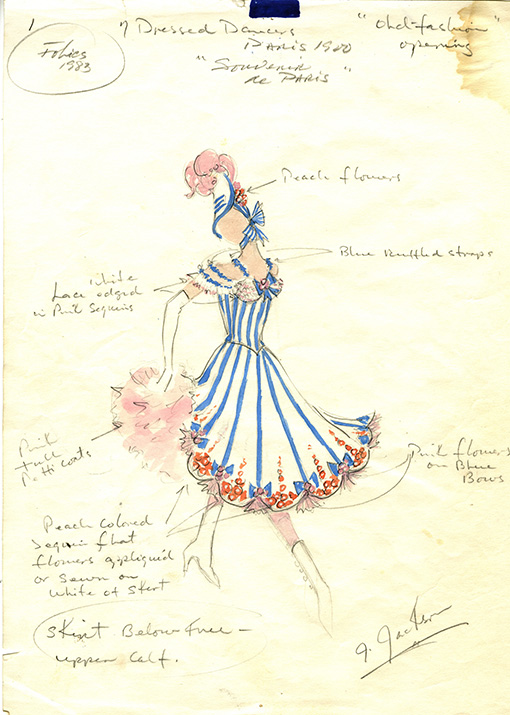 1
Folies
1983
7 Dressed Dancers
Paris 1900
"Souvenir
de Paris"
"Old-fashion"
opening
Peach flowers
Blue Ruffled straps
White
Lace edged
in Pink Sequins
Pink
Tull
Petticoats
Pink flowers
on Blue
Bows
Peach colored
Sequin flat
flowers appliqued
or sewn on
White of Skirt
Skirt Below Knee –
upper Calf.
G. Jackson